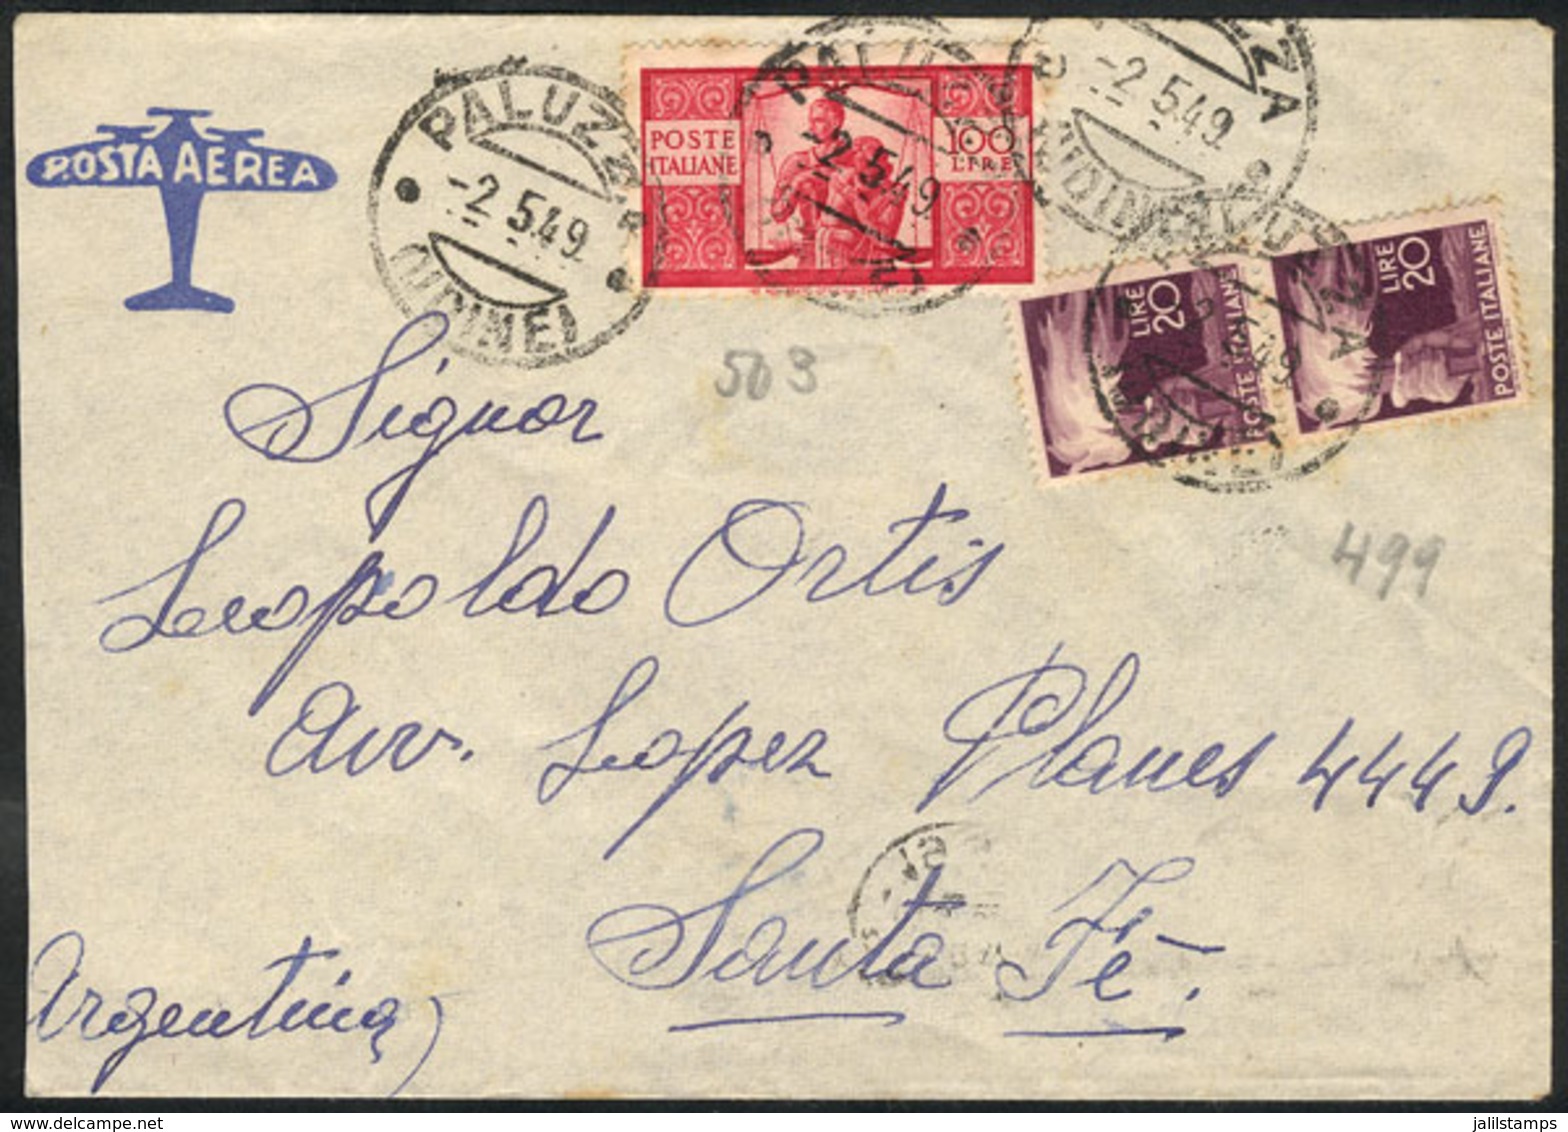 POSTA AEREA
PALUZZA
-2.5.49
(UDINE)
POSTE
ITALIANE
100
LIRE
PALUZZA
-2.5.49
PALUZZA
-2.5.49
(UDINE)
LIRE
20
POSTE ITALIANE
LIRE
20
POSTE ITALIANE
503
499
Signor
Leopoldo Ortis
Avv. Lopez Planes 4449.
Santa Fè.
Argentina)
www.delcampe.net
jalilstamps